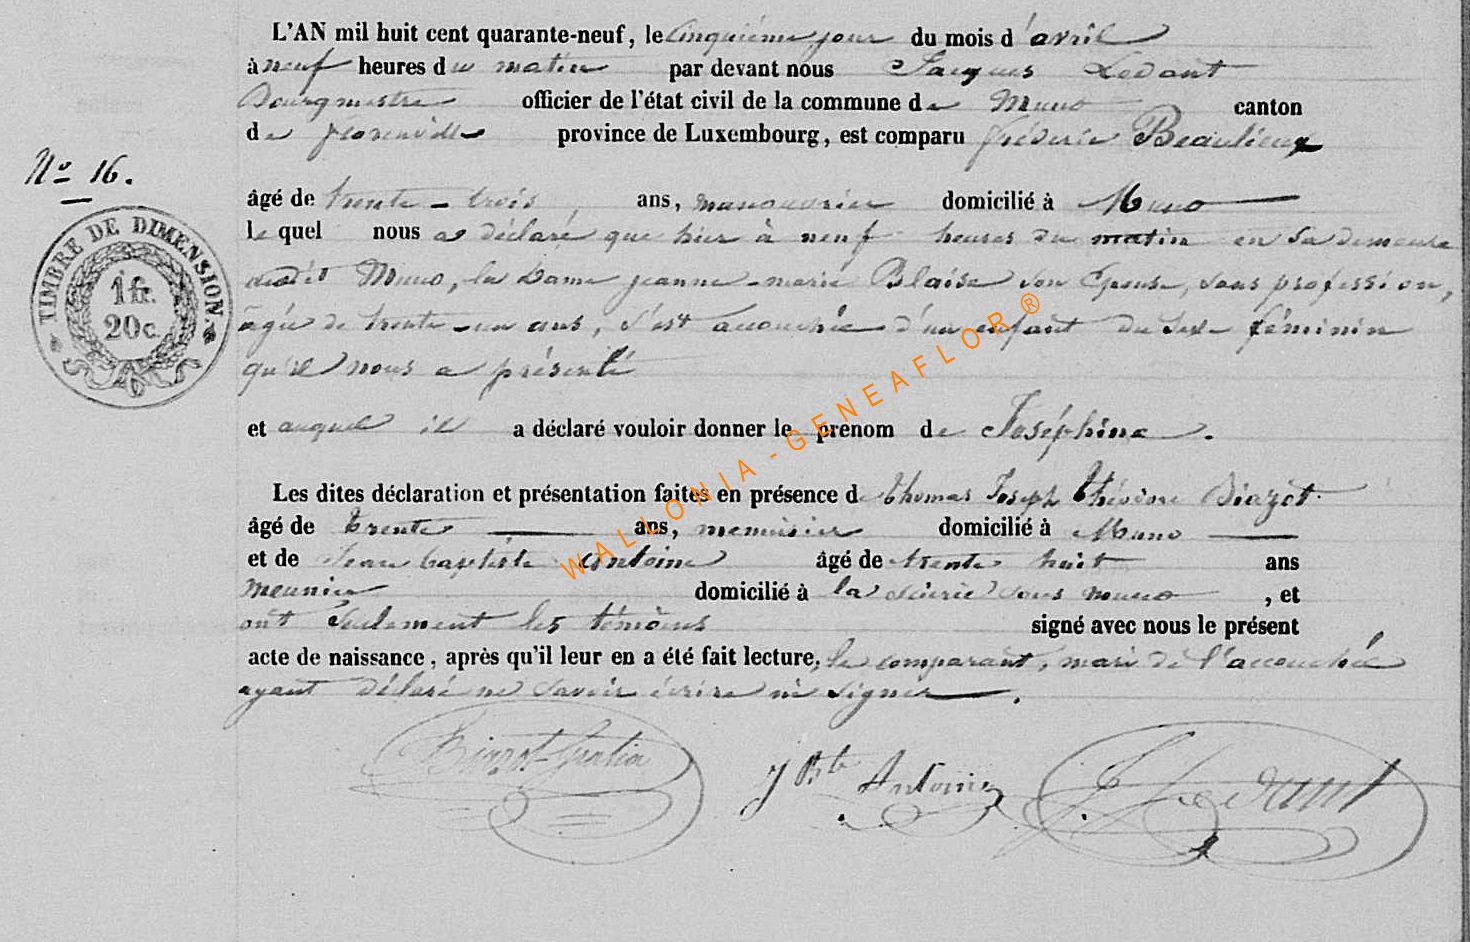 L'AN mil huit cent quarante-neuf, le cinquième jour du mois d'avril
à neuf heures du matin par devant nous Jacques Ledant
Bourgmestre officier de l'état civil de la commune de Muno canton
de florenville province de Luxembourg, est comparu fréderic Beaulieux
No 16.
âgé de trente-trois ans, manouvrier domicilié à Muno
le quel nous a déclaré que hier à neuf heures du matin en sa demeure
audit Muno, la Dame jeanne-marie Blaise son Epouse, sans profession,
agée de trente-un ans, s'est accouchée d'un enfant du sexe féminin
qu'il nous a présenté
et auquel il a déclaré vouloir donner le prénom de Joséphine.
Les dites déclaration et présentation faites en présence de thomas Joseph Biazot
âgé de trente ans, menuisier domicilié à Muno
et de Jean baptiste Antoine âgé de trente huit ans
meunier domicilié à la scierie sous muno, et
ont seulement les témoins signé avec nous le présent
acte de naissance, après qu'il leur en a été fait lecture, le comparant, mari de l'accouchée
ayant déclaré ne savoir écrire ni signer.
J Bte Antoine
J Ledant
TIMBRE DE DIMENSION.
1 fr.
20 c.
WALLONIA-GENEAFLOR®